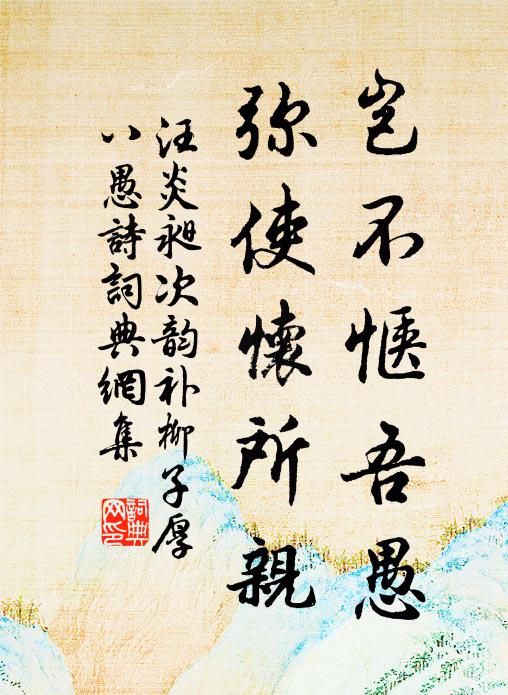 岂不惬吾愚
弥使懷所親
汪炎昶次韵补柳子厚
八愚詩詞典網集
詞典网印